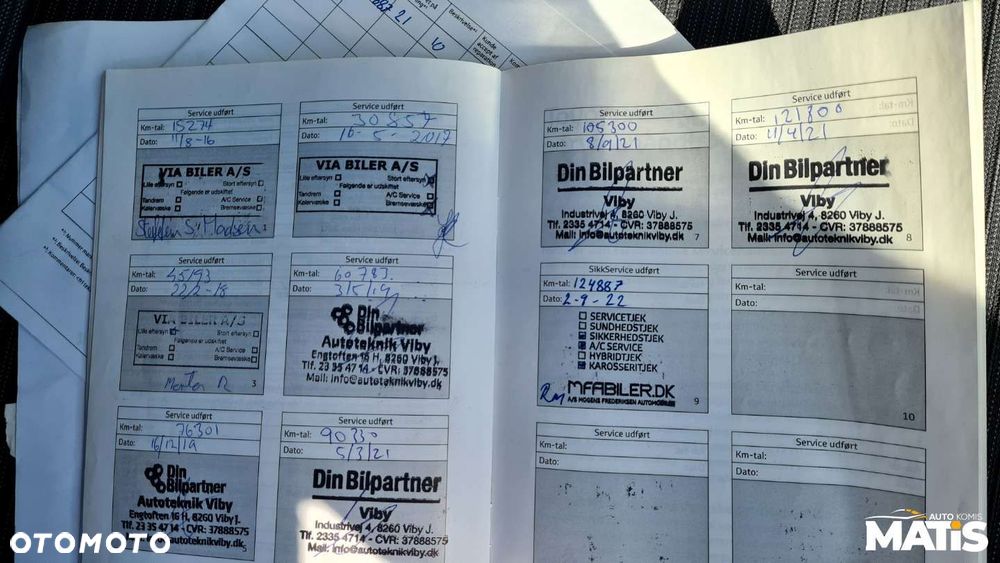 Service udført
Km-tal: 15274
Dato: 11/8-16
VIA BILER A/S
Lille eftersyn
Stort eftersyn
Følgende er udskiftet
Tandrem
A/C Service
Kølervæske
Bremsevæske
Service udført
Km-tal: 30857
Dato: 16-5-2017
VIA BILER A/S
Lille eftersyn
Stort eftersyn
Følgende er udskiftet
Tandrem
A/C Service
Kølervæske
Bremsevæske
Service udført
Km-tal: 45193
Dato: 22/2-18
VIA BILER A/S
Lille eftersyn
Stort eftersyn
Følgende er udskiftet
Tandrem
A/C Service
Kølervæske
Bremsevæske
3
Service udført
Km-tal: 60783
Dato: 3/5/19
Din
Bilpartner
Autoteknik Viby
Engtoften 16 H, 8260 Viby J.
Tlf. 23 35 4714 - CVR: 37888575
Mail: info@autoteknikviby.dk
Service udført
Km-tal: 76301
Dato: 16/12/19
Din
Bilpartner
Autoteknik Viby
Engtoften 16 H, 8260 Viby J.
Tlf. 23 35 4714 - CVR: 37888575
Mail: info@autoteknikviby.dk
5
Service udført
Km-tal: 90330
Dato: 5/3/21
Din Bilpartner
Viby
Industrivej 4, 8260 Viby J.
Tlf. 2335 4714 - CVR: 37888575
Mail: info@autoteknikviby.dk
Service udført
Km-tal: 105300
Dato: 8/9/21
Din Bilpartner
Viby
Industrivej 4, 8260 Viby J.
Tlf. 2335 4714 - CVR: 37888575
Mail: info@autoteknikviby.dk
7
Service udført
Km-tal: 121800
Dato: 11/4/21
Din Bilpartner
Viby
Industrivej 4, 8260 Viby J.
Tlf. 2335 4714 - CVR: 37888575
Mail: info@autoteknikviby.dk
8
SikkService udført
Km-tal: 124887
Dato: 2-9-22
SERVICETJEK
SUNDHEDSTJEK
SIKKERHEDSTJEK
A/C SERVICE
HYBRIDTJEK
KAROSSERITJEK
MFABILER.DK
A/S MOGENS FREDERIKSEN AUTOMOBILER
9
Service udført
Km-tal:
Dato:
10
Service udført
Km-tal:
Dato:
Service udført
Km-tal:
Dato:
OTOMOTO
AUTO KOMIS
MATIS